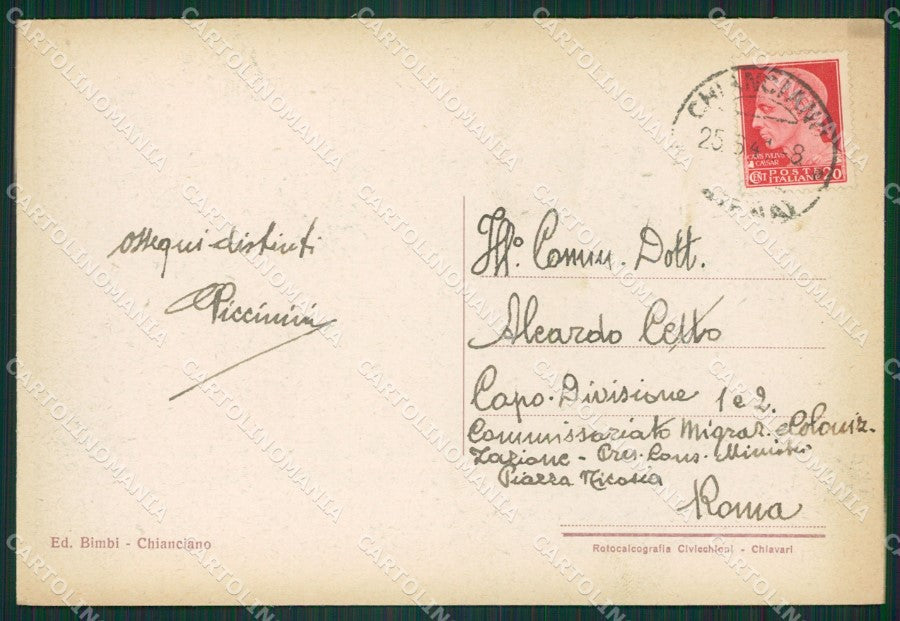 ossequi distinti
Piccinini
Ill.º Comm. Dott.
Aleardo
Capo-Divisione 1 e 2.
Commissariato Migraz. e Coloniz-
zazione - Pres. Cons. Ministri
Piazza Nicosia
Roma
Ed. Bimbi - Chianciano
Rotocalcografia Civicchioni - Chiavari
CHIANCIANO
25. -8
(SIENA)
CAIVS IVLIVS
CAESAR
CENT POSTE ITALIANE 20
CARTOLINOMANIA